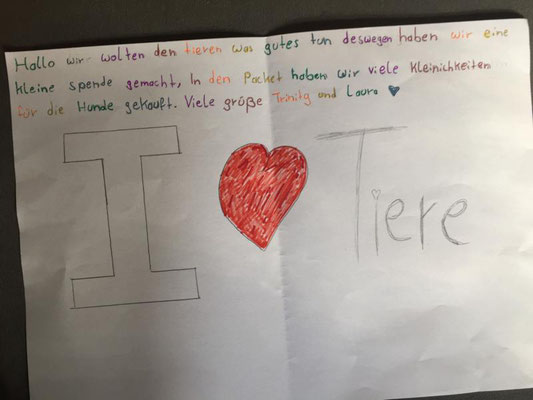 Hallo wir wolten den tieren was gutes tun deswegen haben wir eine
kleine spende gemacht, In den Packet haben wir viele Kleinichkeiten
für die Hunde gekauft. Viele grüße Trinity und Laura ♥
I ♥ Tiere